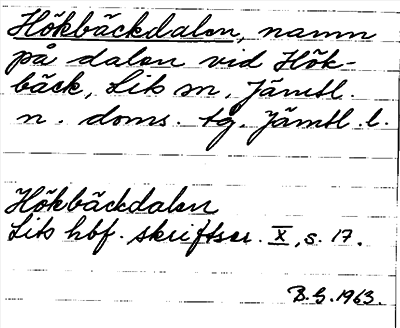 Hökbäckdalen, namn
på dalen vid Hök-
bäck, Lits sn, Jämtl.
n. doms. tg. Jämtl. l.
Hökbäckdalen
Lits hbf. skriftser. X, s. 17.
B.G. 1963.